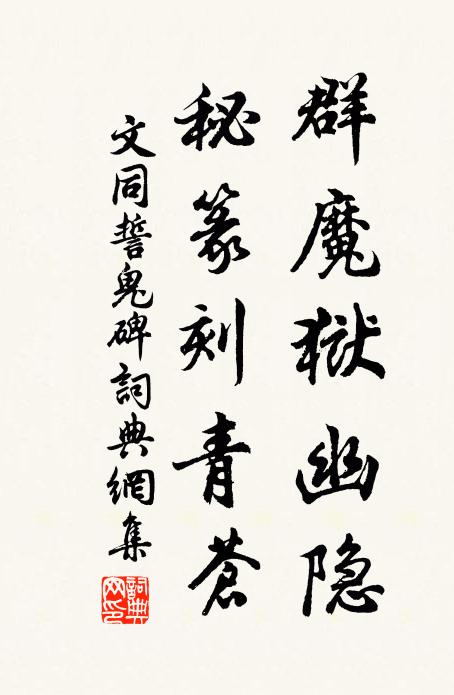 群魔獄幽隐
秘篆刻青蒼
文同誓鬼碑詞典網集
詞典網印